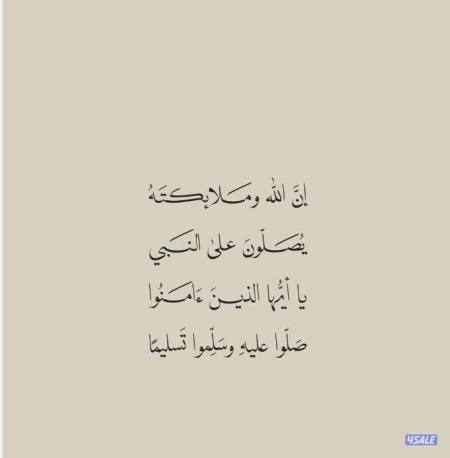 إنَّ الله ومَلايكتَهُ
يُصَلّونَ على النَبي
يا أيُّها الذينَ ءَامَنُوا
صَلّوا عليهِ وسَلِّموا تَسليمًا
4SALE